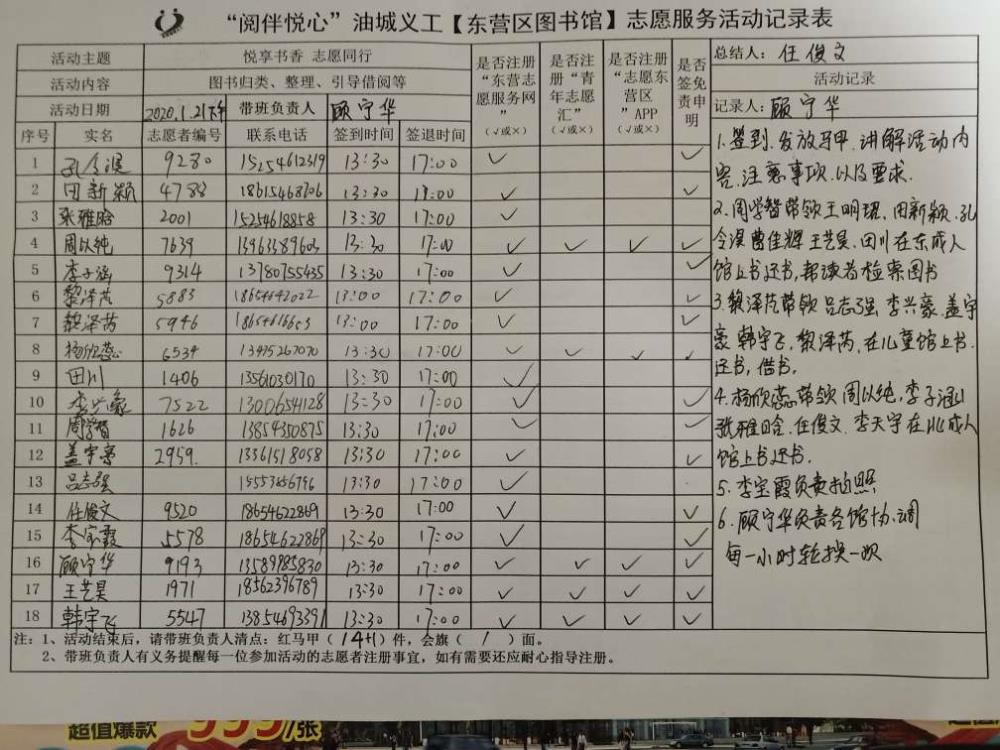 “阅伴悦心”油城义工【东营区图书馆】志愿服务活动记录表
活动主题 悦享书香 志愿同行 是否注册“东营志愿服务网”（√或×） 是否注册“青年志愿汇”（√或×） 是否注册“志愿东营区”APP（√或×） 是否签免责申明 总结人：任俊文
活动内容 图书归类、整理、引导借阅等 活动记录
活动日期 2020.1.21下午 带班负责人 顾守华 记录人：顾守华
序号 实名 志愿者编号 联系电话 签到时间 签退时间
1 孔令淏 9280 15254612319 13:30 17:00 √ √
2 田新颖 4788 18615468706 13:30 17:00 √ √
3 张雅晗 2001 15254618858 13:30 17:00 √
4 周以纯 7639 13:30 17:00 √ √ √ √
5 李子涵 9314 13780755435 13:30 17:00 √ √
6 黎泽芃 5883 18654642022 13:00 17:00 √ √
7 黎泽芮 5946 13:00 17:00 √ √
8 杨欣蕊 6534 13475267070 13:30 17:00 √ √ √ √
9 田川 1406 13561030170 13:30 17:00 √
10 李兴豪 7522 13006654128 13:30 17:00 √ √
11 周学智 1626 13854350875 13:30 17:00 √ √
12 盖宇豪 2959. 13361518058 13:30 17:00 √ √
13 吕志强 13:30 17:00 √
14 任俊文 9520 18654622869 13:30 17:00 √ √
15 李宝霞 5578 18654622869 13:30 17:00 √ √
16 顾守华 9193 13589985830 13:30 17:00 √ √ √ √
17 王艺昊 1971 18562396789 13:30 17:00 √ √ √ √
18 韩宇飞 5547 13854693391 13:30 17:00 √ √ √ √
1.签到、发放马甲、讲解活动内
容、注意事项、以及要求.
2.周学智带领王明琨、田新颖、孔
令淏 曹佳辉 王艺昊、田川在东成人
馆上书还书,帮读者检索图书
3.黎泽芃带领吕志强、李兴豪、盖宇
豪 韩宇飞、黎泽芮、在儿童馆上书.
还书,借书.
4.杨欣蕊带领周以纯,李子涵
张雅晗、任俊文、李天宇在北成人
馆上书还书.
5.李宝霞负责拍照
6.顾守华负责各馆协调
每一小时轮换一次
注：1、活动结束后，请带班负责人清点：红马甲（14+1）件，会旗（ / ）面。
2、带班负责人有义务提醒每一位参加活动的志愿者注册事宜，如有需要还应耐心指导注册。
超值爆款 999/张